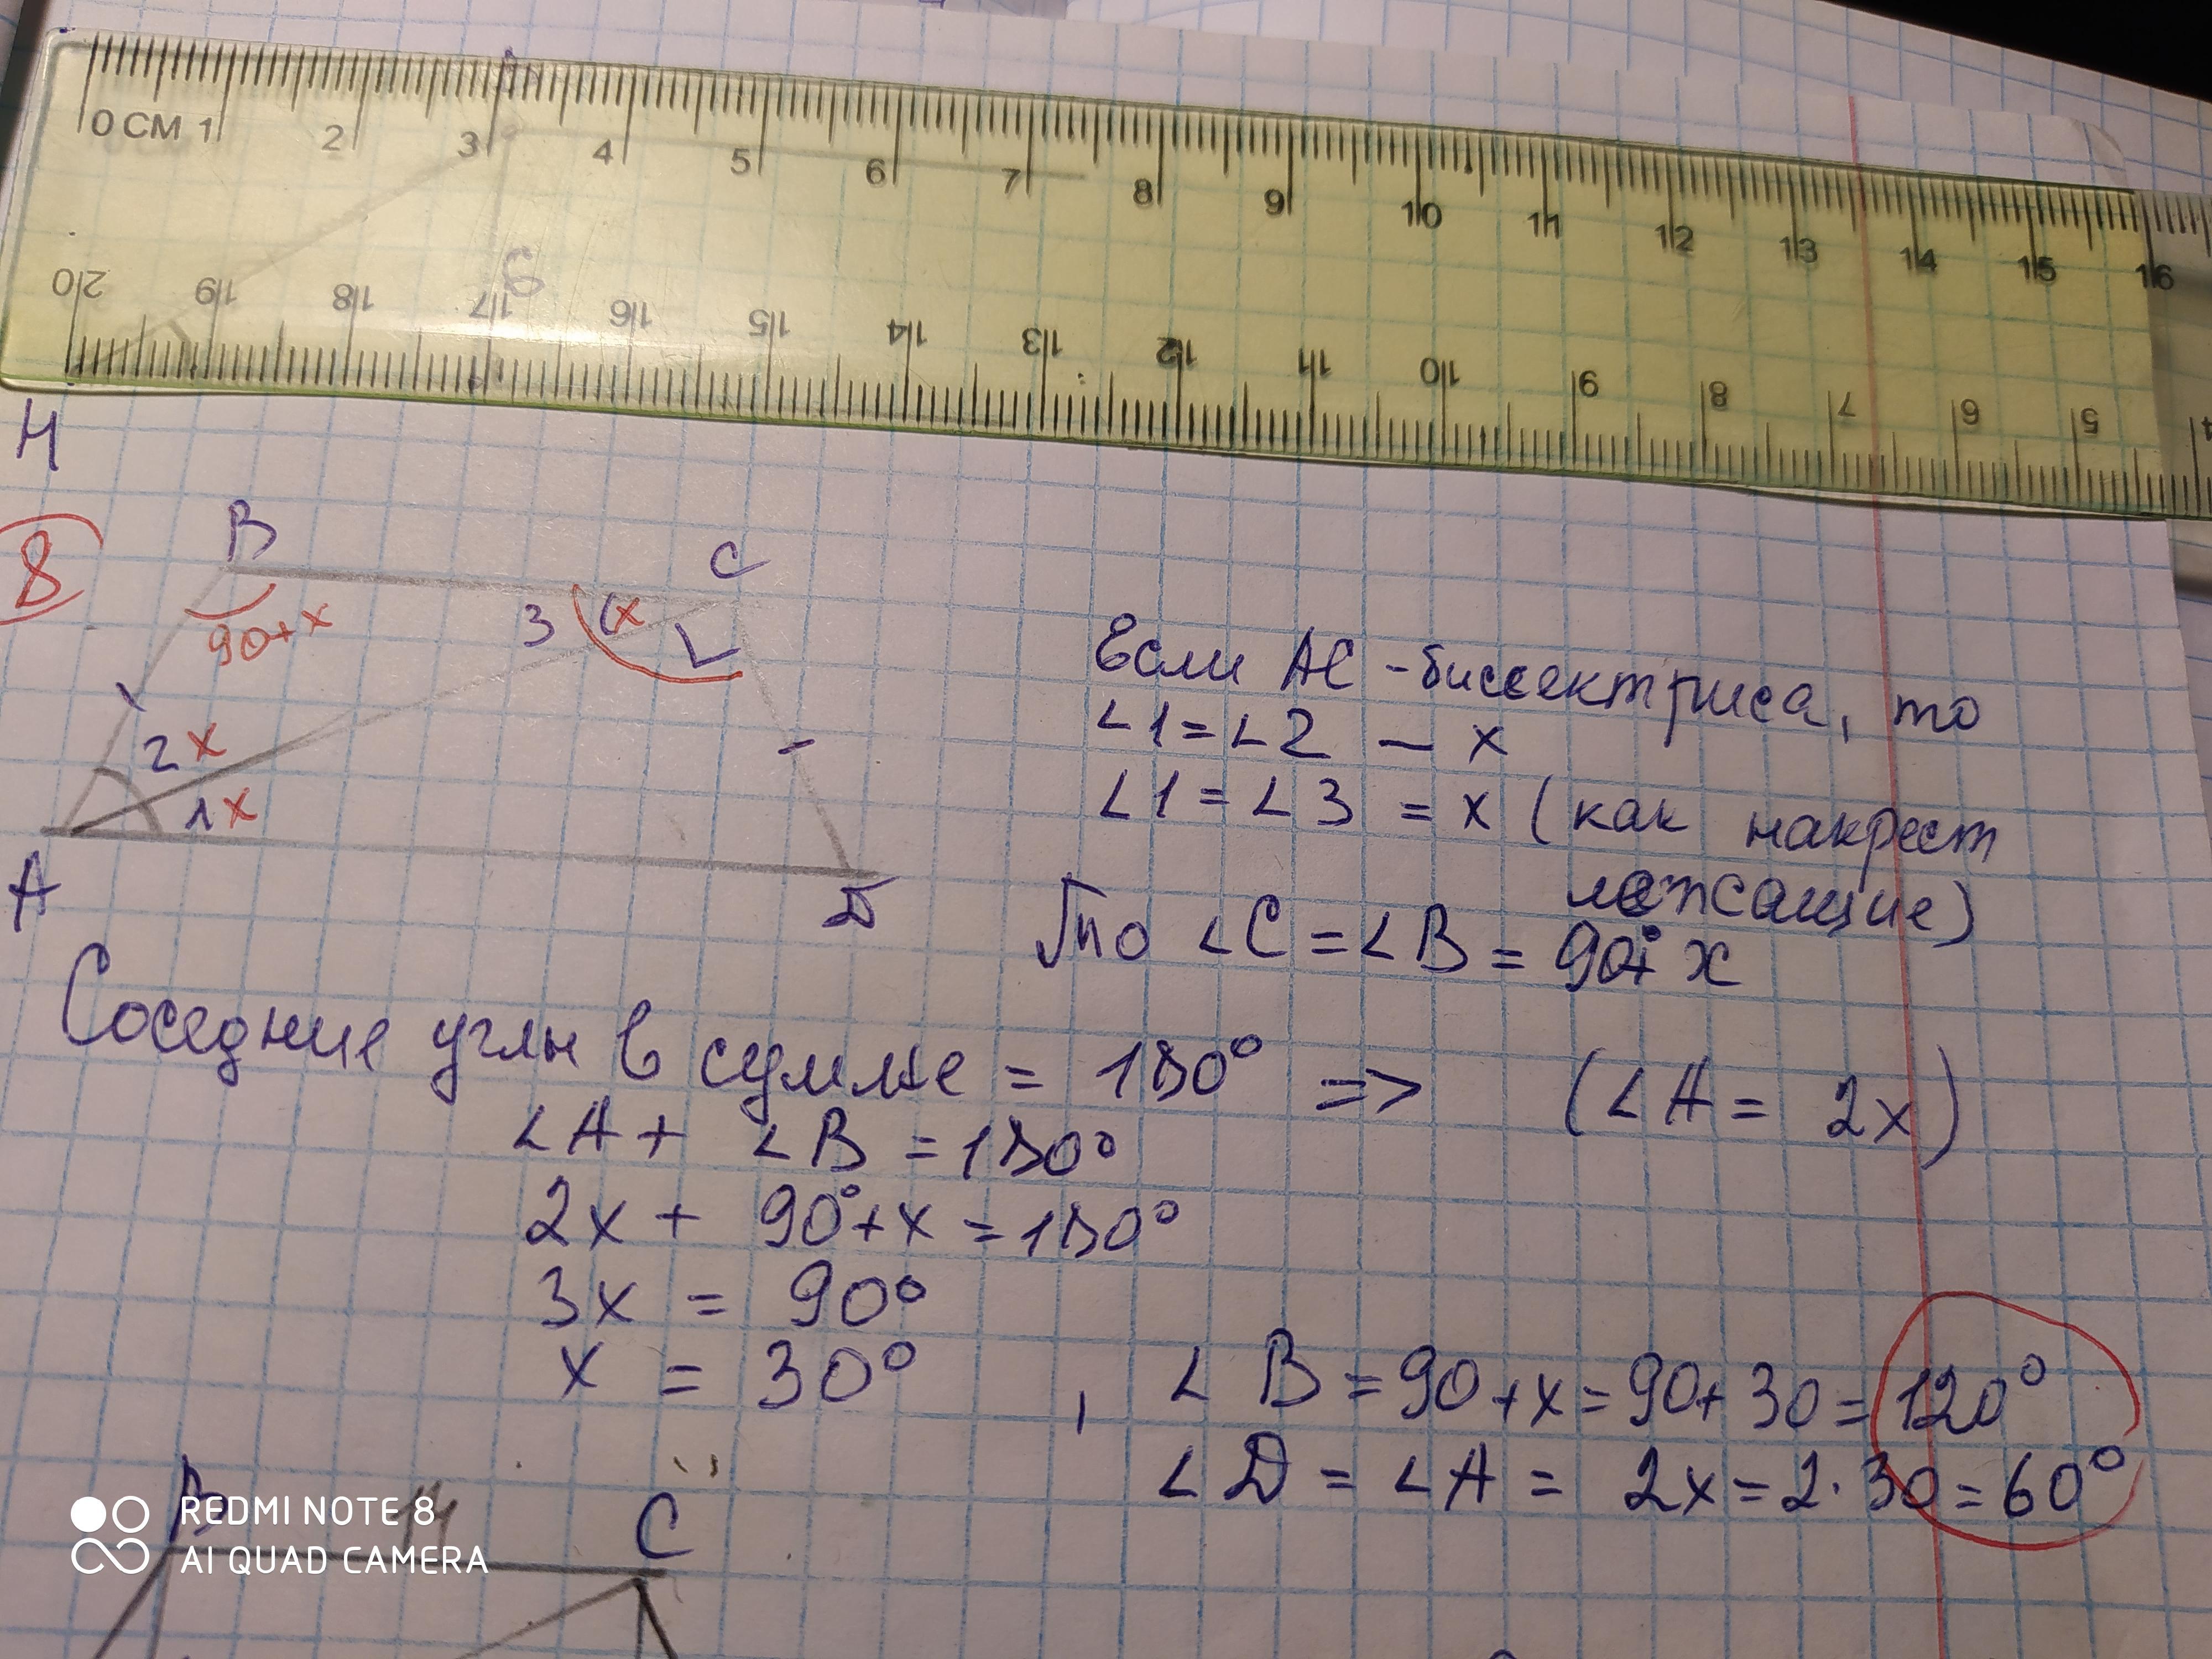 0 СМ 1 2 3 4 5 6 7 8 9 10 11 12 13 14 15 16
20 19 18 17 16 15 14 13 12 11 10 9 8 7 6 5 4
Н
8
B
C
90+x
3 x
2 x
1 x
A
D
Если AC - биссектриса, то
∠1 = ∠2 — x
∠1 = ∠3 = x (как накрест
лежащие)
то ∠C = ∠B = 90°+ x
Соседние углы в сумме = 180° => (∠A = 2x)
∠A + ∠B = 180°
2x + 90°+x = 180°
3x = 90°
x = 30° , ∠B = 90 + x = 90 + 30 = 120°
∠D = ∠A = 2x = 2·30 = 60°
B 14 C
REDMI NOTE 8
AI QUAD CAMERA